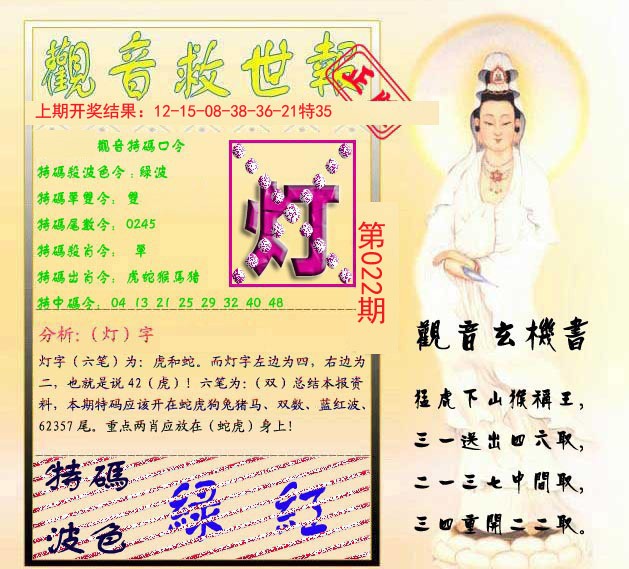 觀音救世報
正
上期开奖结果：12-15-08-38-36-21特35
觀音特碼口令
特碼殺波色令：綠波
特碼單雙令： 雙
特碼尾數令： 0245
特碼殺肖令： 單
特碼出肖令： 虎蛇猴馬猪
特中碼令： 04 13 21 25 29 32 40 48
灯
第022期
分析:（灯）字
灯字（六笔）为：虎和蛇。而灯字左边为四，右边为
二，也就是说 42（虎）！六笔为：（双）总结本报资
料，本期特码应该开在蛇虎狗兔猪马、双数、蓝红波、
62357 尾。重点两肖应放在（蛇虎）身上！
特碼
波色
綠 紅
觀音玄機書
猛虎下山猴稱王，
三一送出四六取，
二一三七中間取，
三四重開二二取。